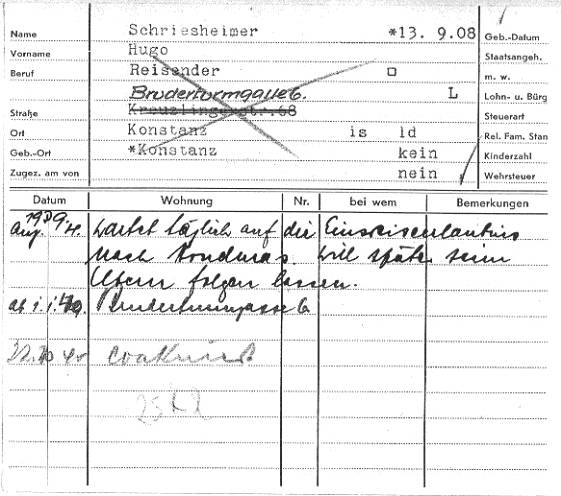 Name Schriesheimer *13. 9.08 Geb.-Datum
Vorname Hugo Staatsangeh.
Beruf Reisender m. w.
Bruderturmgasse 6. L Lohn- u. Bürg
Straße Kreuzlingerstr.68 Steuerart
Ort Konstanz is ld Rel. Fam. Stan
Geb.-Ort *Konstanz kein Kinderzahl
Zugez. am von nein Wehrsteuer
Datum Wohnung Nr. bei wem Bemerkungen
1939 wartet täglich auf die Einreiseerlaubnis
nach Honduras. Will später seine
Eltern folgen lassen.
ab 1.1.40. Bruderturmgasse 6
22.10 40